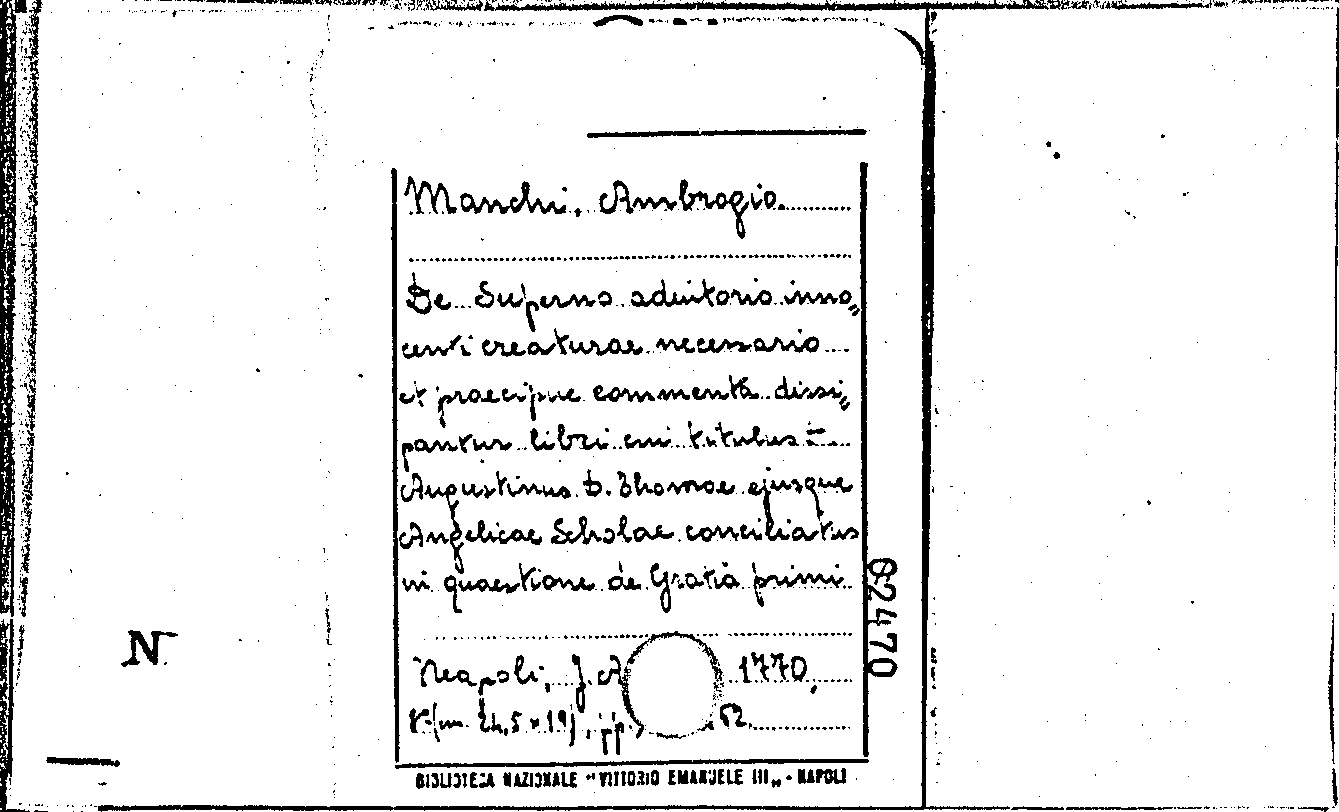 Manchi, Ambrogio.
De Superno adiutorio inno„
centi creaturae necessario
et praecipue commenta dissi„
pantur libri cui titulus =
Augustinus D. Thomae ejusque
Angelicae Scholae conciliatus
in quaestione de Gratia primi
Neapoli, J. A 1770,
8-(m. 24,5 x 19), pp. 52
62470
N
BIBLIOTECA NAZIONALE "VITTORIO EMANUELE III„ - NAPOLI